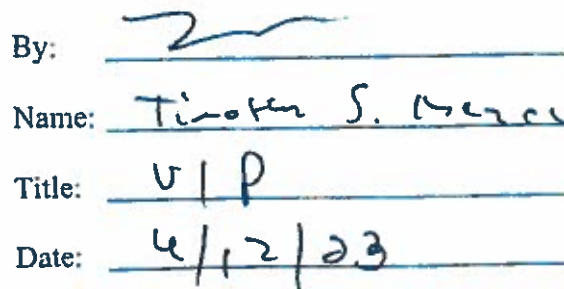 By:
Name: Timothy S.
Title: V/P
Date: 4/12/23